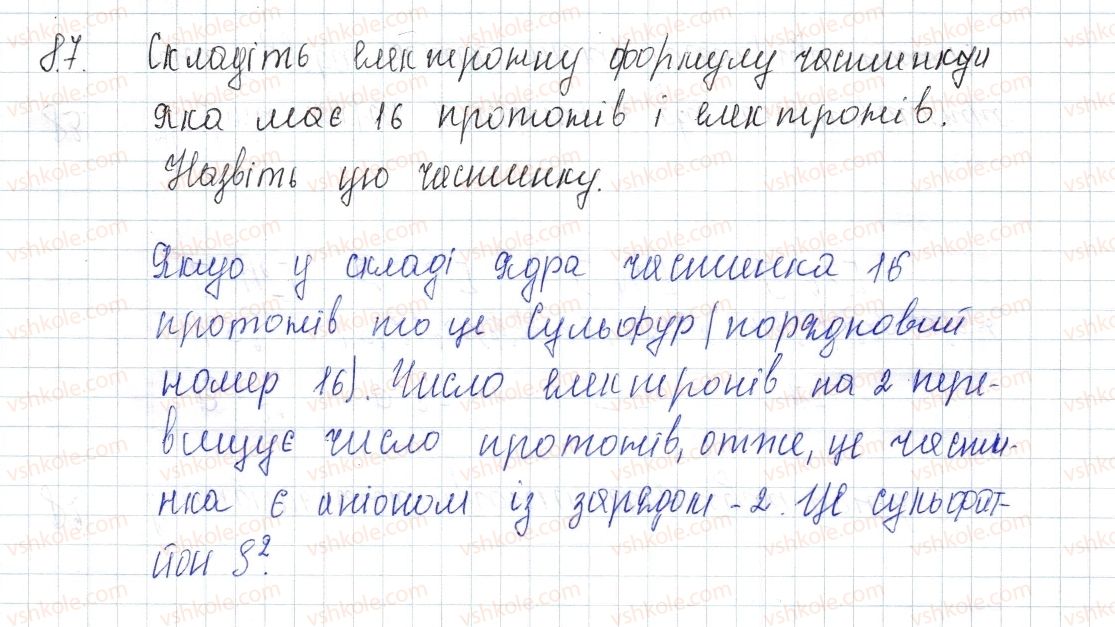 8.7. Складіть електронну формулу частинки
яка має 16 протонів і електронів.
Назвіть цю частинку.
Якщо у складі ядра частинка 16
протонів то це Сульфур (порядновий
номер 16). Число електронів на 2 пере-
вищує число протонів, отже, це части-
нка є аніоном із зарядом -2. Це сульфат-
йон S²⁻.